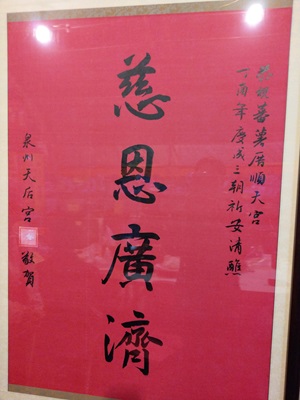 恭祝蕃薯厝順天宮
丁酉年慶成三朝祈安清醮
慈恩廣濟
泉州天后宮 敬賀